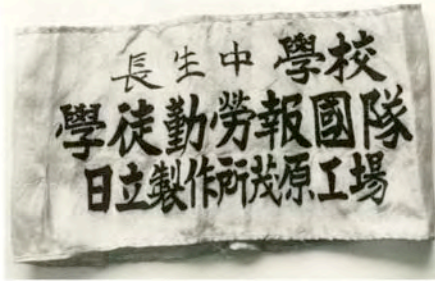 長生中學校
學徒勤勞報國隊
日立製作所茂原工場